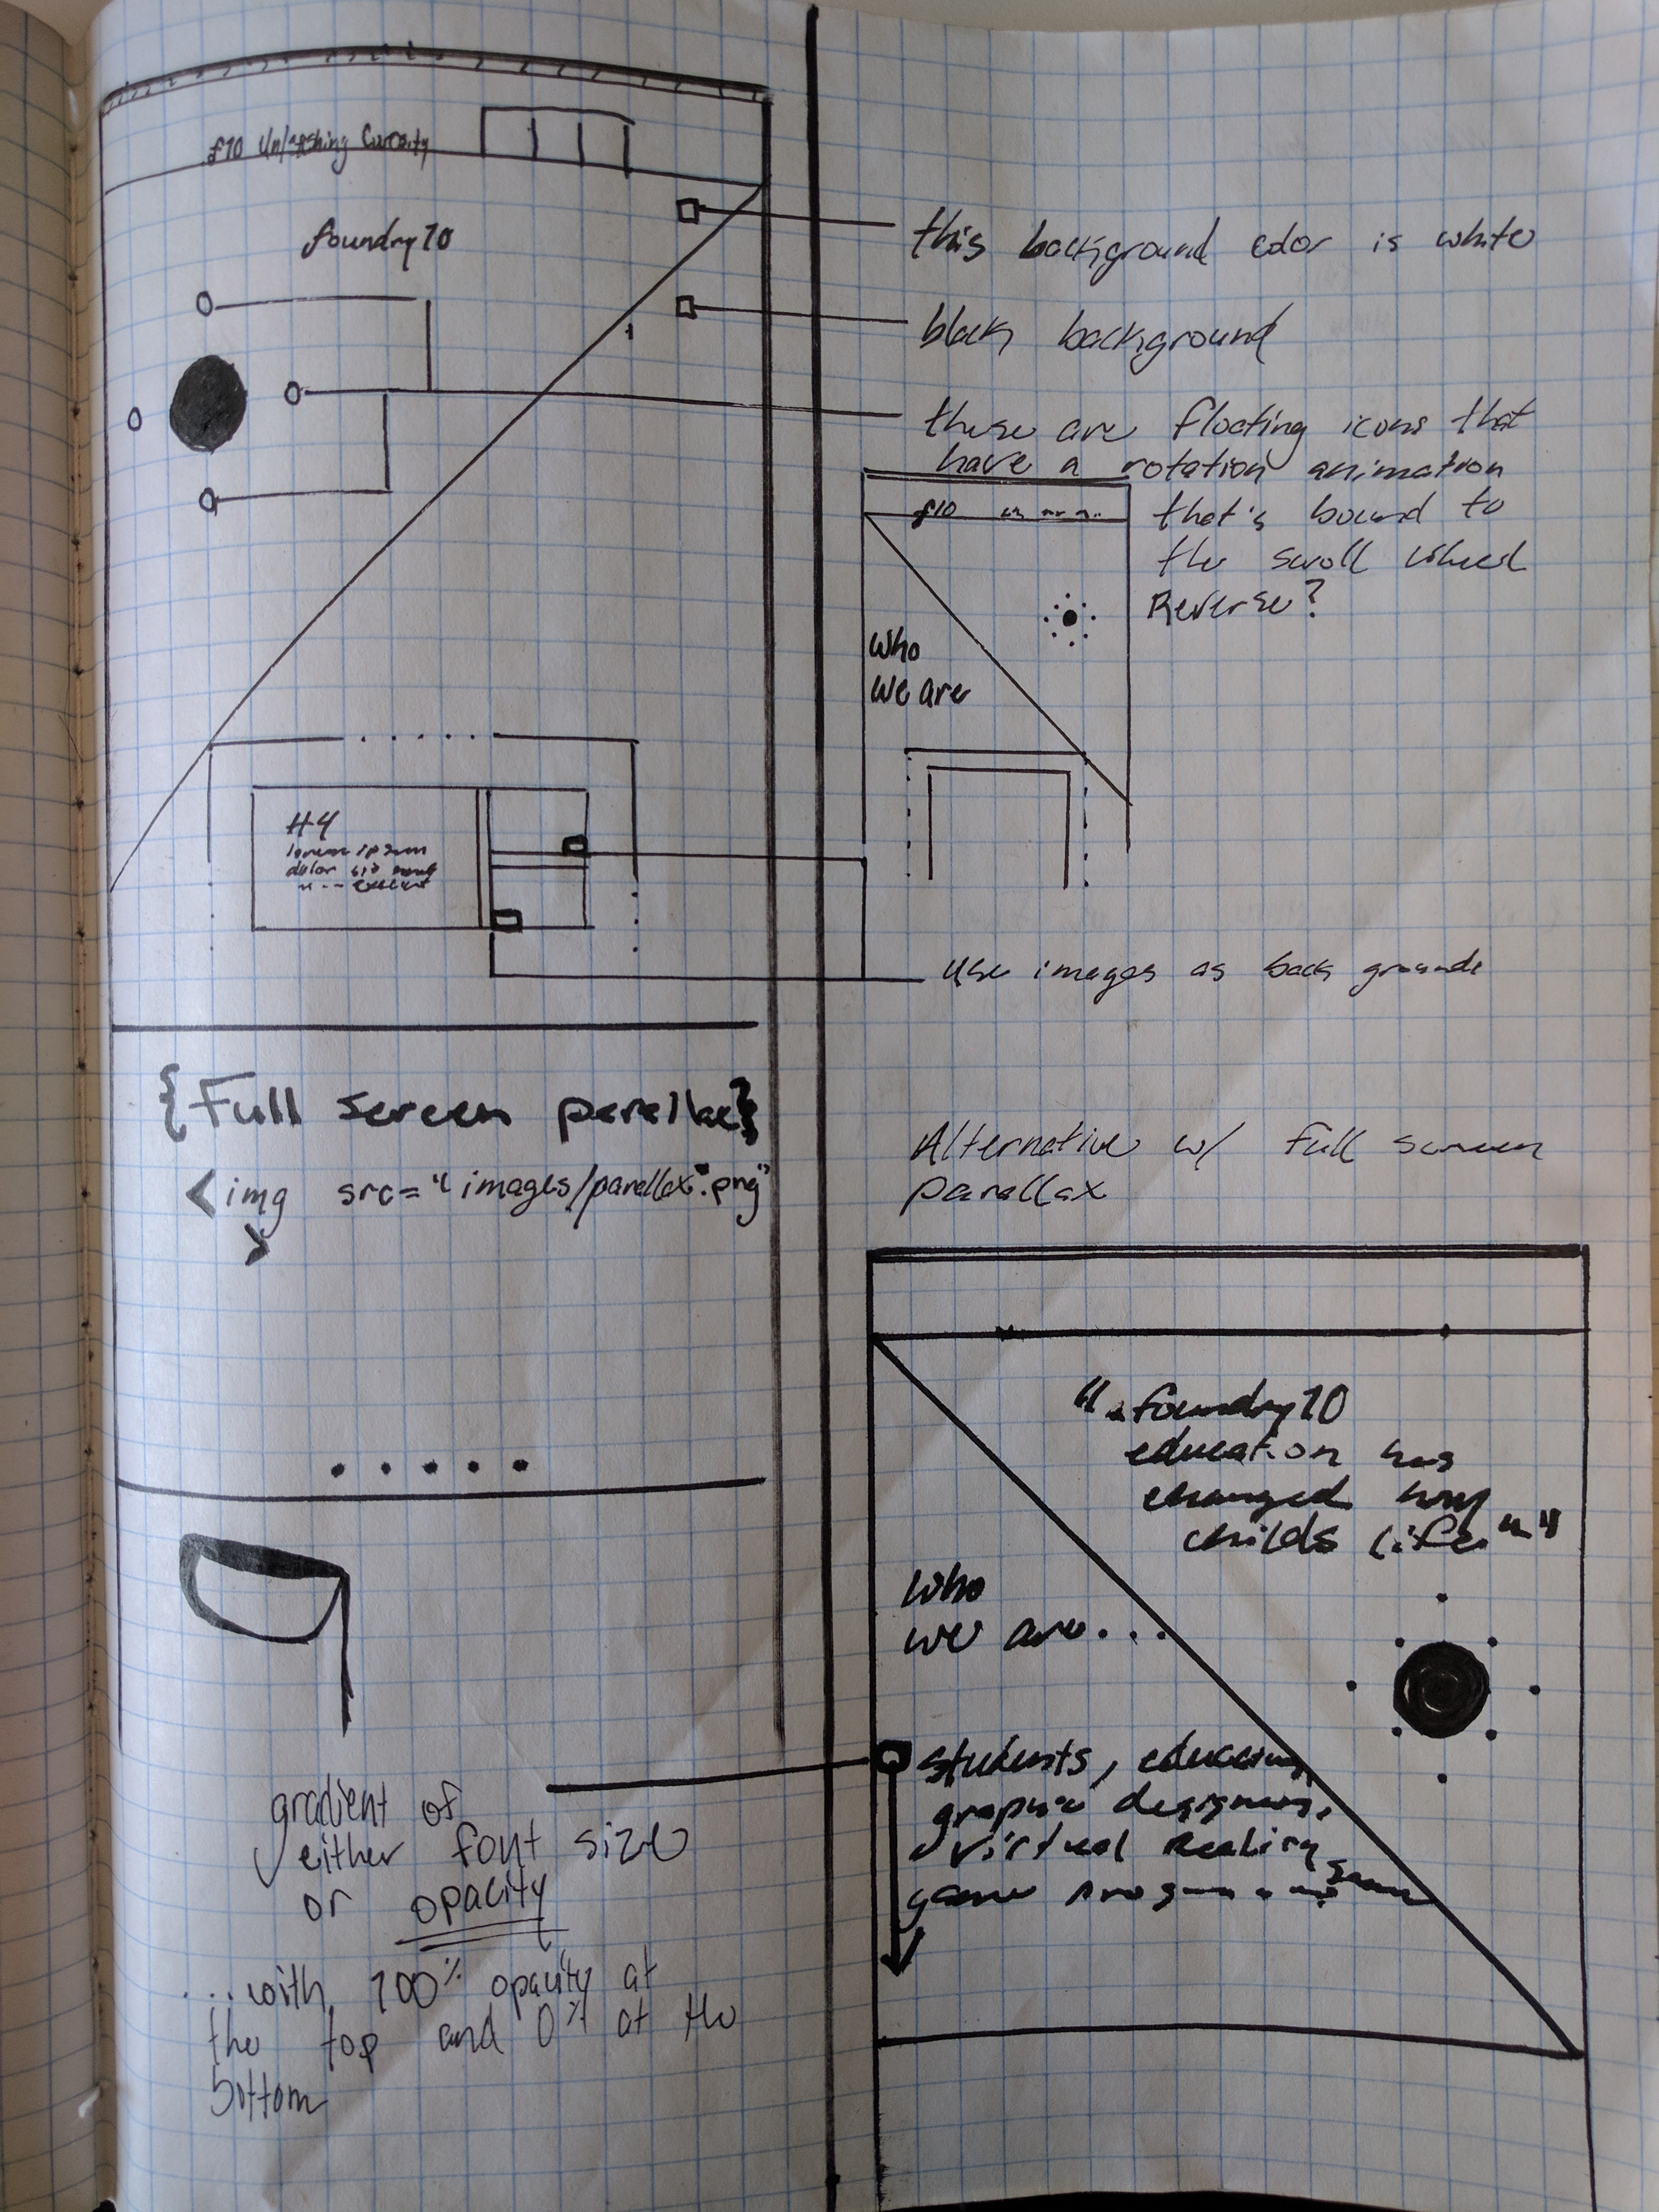 f10 Unleashing Curosity
foundry10
this background color is white
black background
these are floating icons that
have a rotation animation
that's bound to
the scroll wheel
Reverse?
f10
Who
we are
H4
lorem ipsum
dolor
use images as back grounds
{Full screen parallax}
<img src="images/parallax*.png"
>
Alternative w/ Full screen
parallax
"..foundry10
education has
changed my
childs life.."
Who
we are...
students,
graphic designers,
virtual Reality
game
gradient of
either font size
or opacity
...with 100% opacity at
the top and 0% at the
bottom